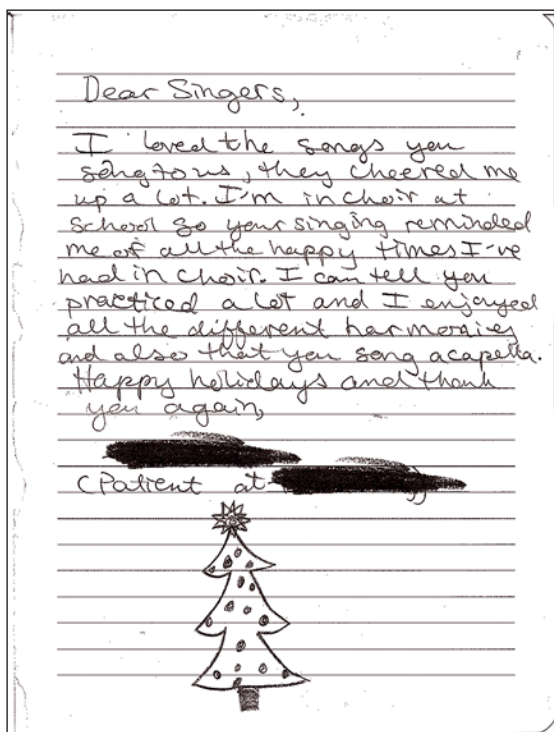 Dear Singers,
I loved the songs you
sang to us, they cheered me
up a lot. I'm in choir at
school so your singing reminded
me of all the happy times I've
had in choir. I can tell you
practiced a lot and I enjoyed
all the different harmonies
and also that you song acapella.
Happy holidays and thank
you again,
(Patient at